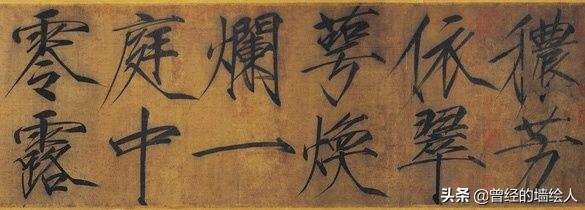 穠芳
依翠
萼煥
爛一
庭中
零露
头条 @曾经的墙绘人